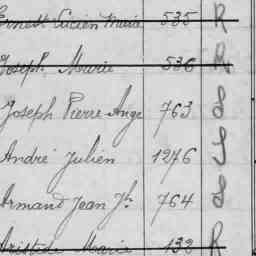 Ernest Lucien Marie 535 R
Joseph Meurie 536 R
Joseph Pierre Ange 763 8
André Julien 1276
Armand Jean Jh 764 8
Aristide Marie 132 R